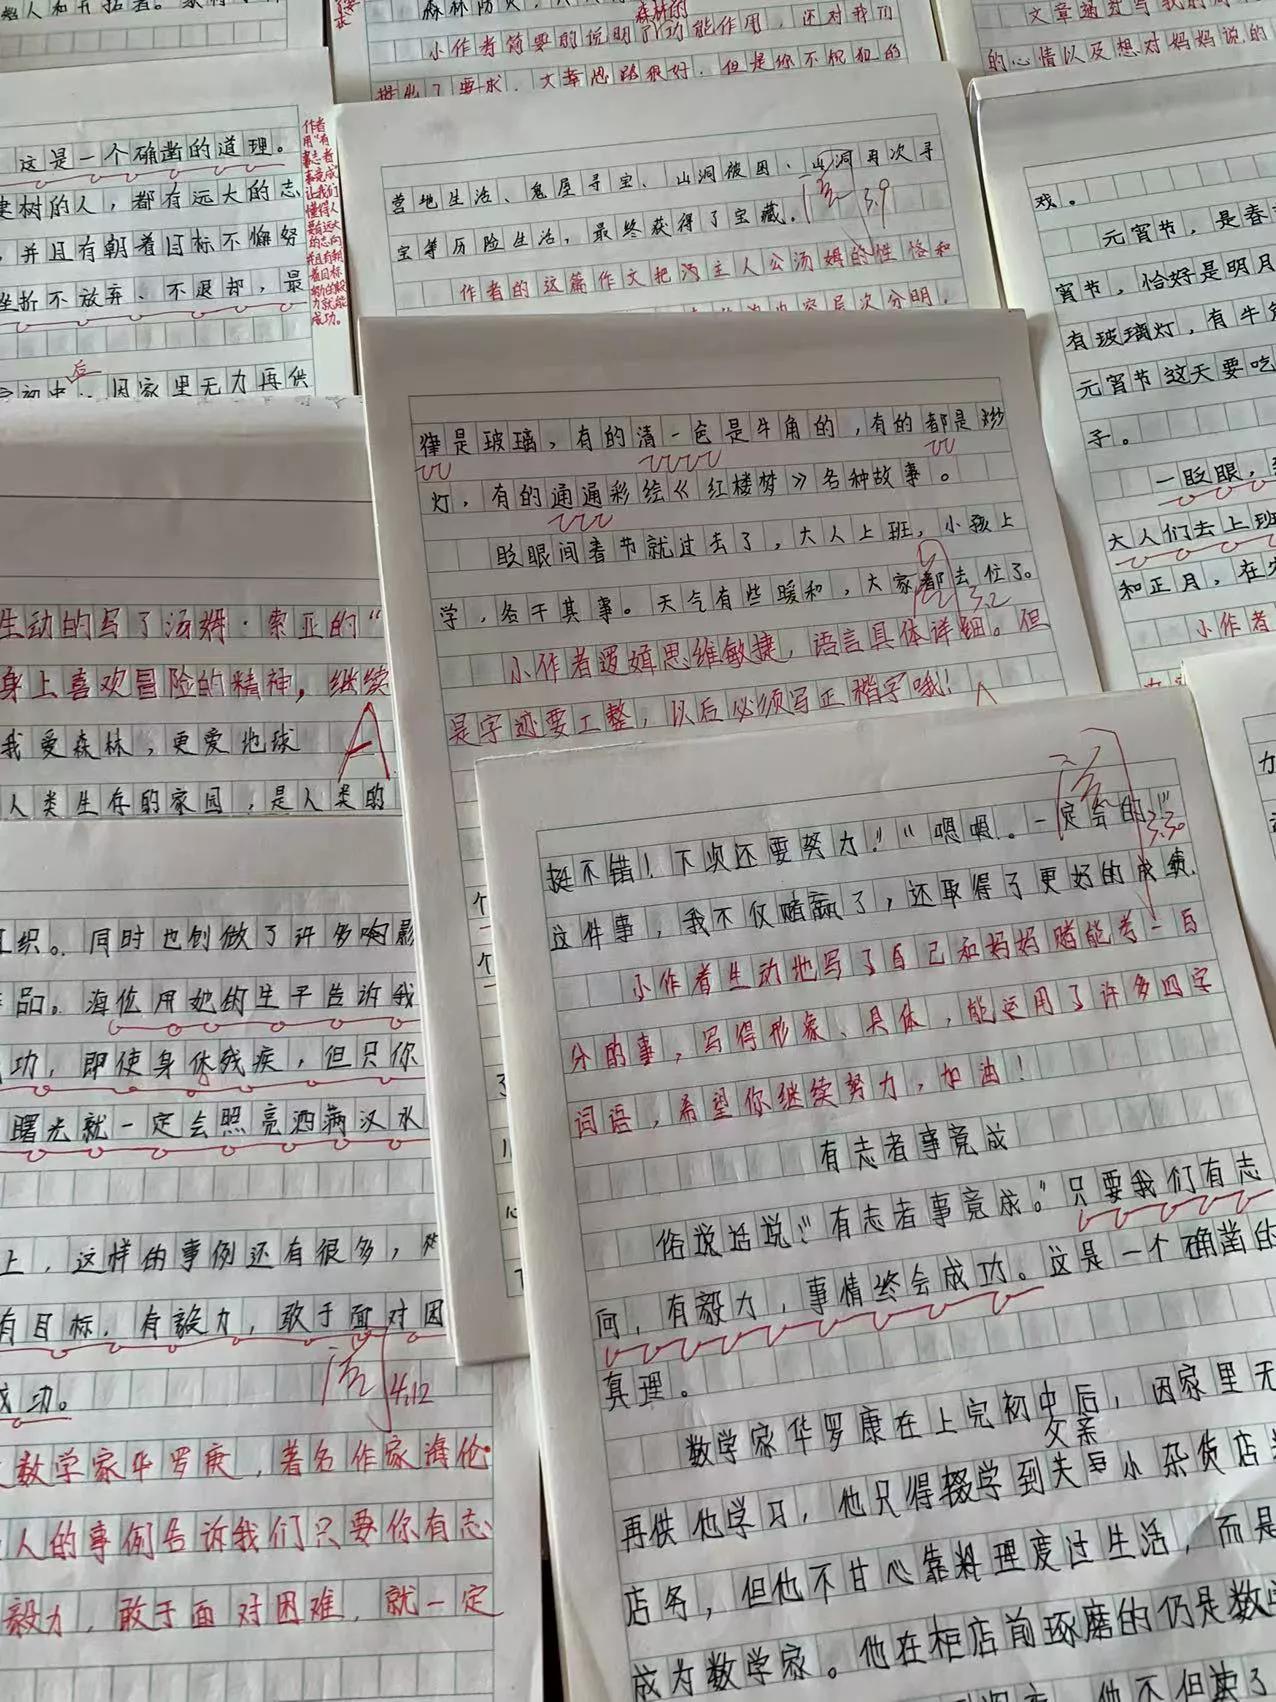 森林防火
森林的
小作者简要的说明了功能作用，还对我们
提出了要求。文章思路很好，但是你不
文章通过写我的
的心情以及想对妈妈说的
这是一个确凿的道理。
建树的人，都有远大的志
，并且有朝着目标不懈努
挫折不放弃、不退却，最
后
初中，因家里无力再供
作者
用“有
志者
事竟成”
让我们
懂得人
要有远大
的志向
并且有朝
着目标
力就能
成功。
营地生活、鬼屋寻宝、山洞被困、山洞再次寻
宝等历险生活，最终获得了宝藏。
3.9
作者的这篇作文把汤主人公汤姆的性格和
内容层次分明，
戏。
元宵节，是春
宵节，恰好是明月
有玻璃灯，有牛角
元宵节这天要吃
子。
一眨眼，
大人们去上班
和正月，在
小作者
律是玻璃，有的清一色是牛角的，有的都是纱
灯，有的通通彩绘《红楼梦》各种故事。
眨眼间春节就过去了，大人上班，小孩上
学，各干其事。天气有些暖和，大家都去忙了。
3.2
小作者逻辑思维敏捷，语言具体详细。但
是字迹要工整，以后必须写正楷字哦！
A
生动的写了汤姆·索亚的“
身上喜欢冒险的精神，继续
我爱森林，更爱地球
A
人类生存的家园，是人类的
组织。同时也创做了许多
品。海伦用她的生平告诉我
功，即使身体残疾，但只你
曙光就一定会照亮洒满汉水
上，这样的事例还有很多，
有目标，有毅力，敢于面对困
成功。
4.12
数学家华罗庚，著名作家海伦
人的事例告诉我们只要你有志
毅力，敢于面对困难，就一定
挺不错！下次还要努力！”“嗯嗯。一定会的！”
3.30
这件事，我不仅赌赢了，还取得了更好的成绩。
小作者生动地写了自己和妈妈赌能考一百
分的事，写得形象、具体，能运用了许多四字
词语，希望你继续努力，加油！
有志者事竟成
俗说话说：“有志者事竟成。”只要我们有志
向，有毅力，事情终会成功。这是一个确凿的
真理。
数学家华罗康在上完初中后，因家里无
父亲
再供他学习，他只得辍学到夫与小杂货店
店务，但他不甘心靠料理度过生活，而是
成为数学家。他在柜店前琢磨的仍是数学
他不但读了